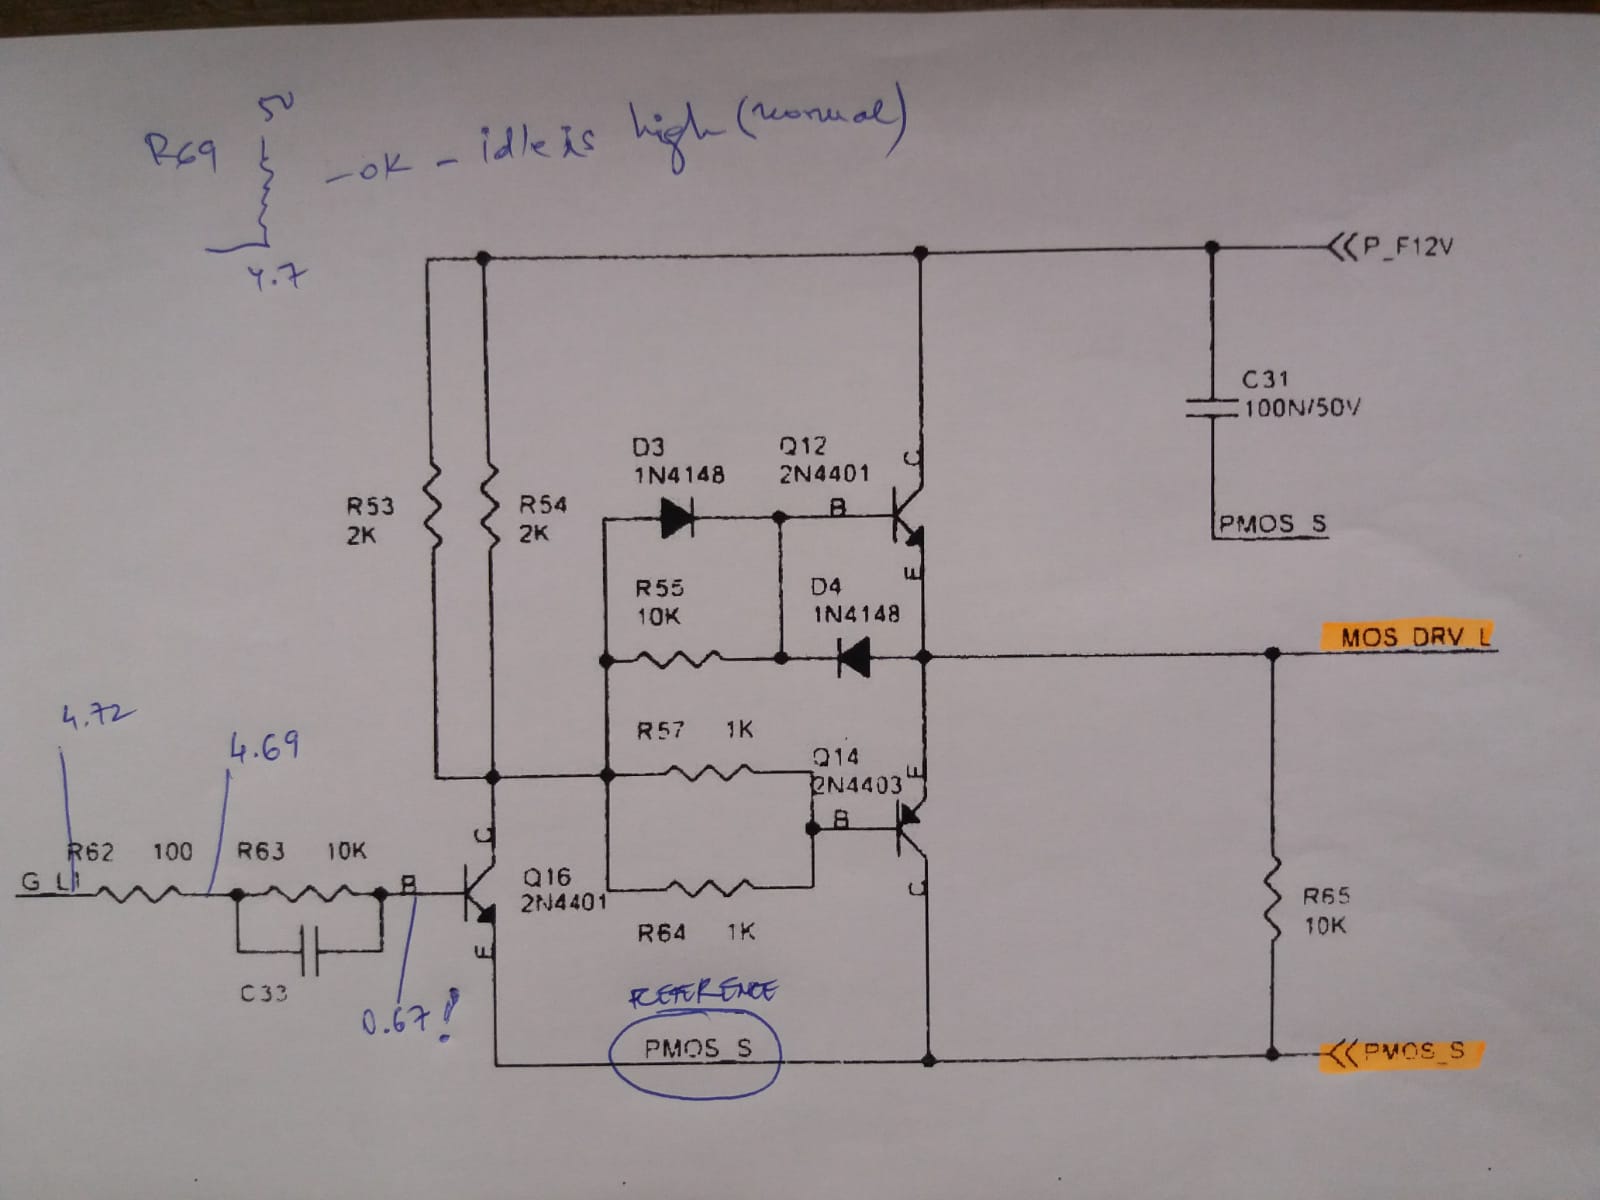 5V
R69 - OK - idle is high (normal)
4.7
P_F12V
C31
100N/50V
PMOS_S
D3
1N4148
Q12
2N4401
C
B
E
R53
2K
R54
2K
R55
10K
D4
1N4148
MOS_DRV_L
4.72
4.69
R57 1K
Q14
2N4403
E
B
C
R62 100
R63 10K
G_L1
B
C
Q16
2N4401
E
C33
0.67!
R64 1K
R65
10K
REFERENCE
PMOS_S
PMOS_S